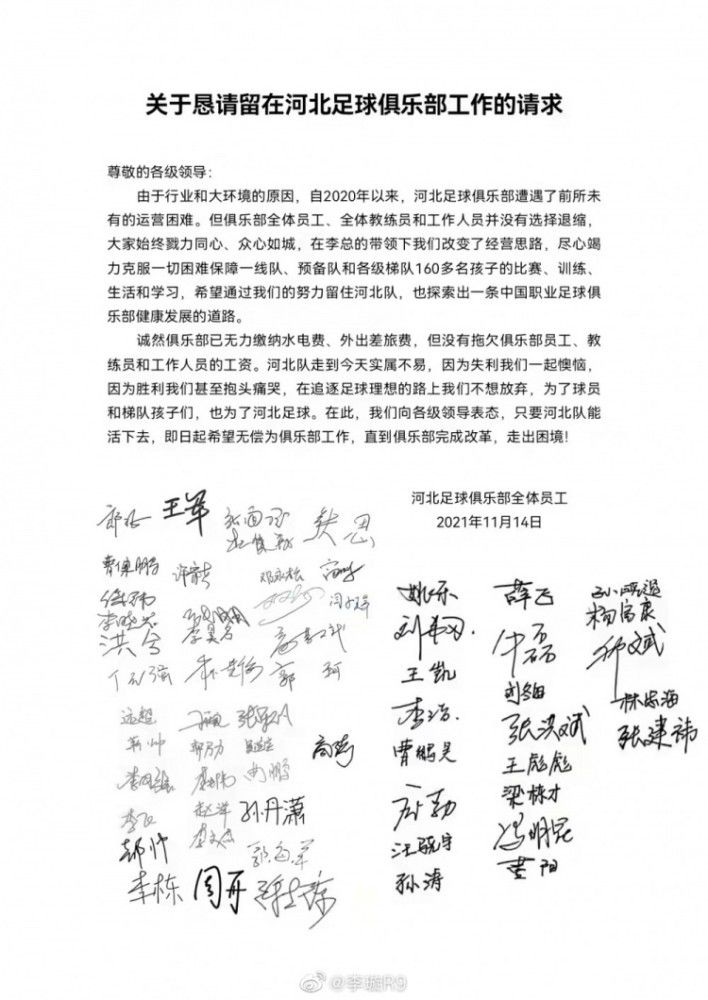 关于恳请留在河北足球俱乐部工作的请求
尊敬的各级领导：
由于行业和大环境的原因，自2020年以来，河北足球俱乐部遭遇了前所未
有的运营困难。但俱乐部全体员工、全体教练员和工作人员并没有选择退缩，
大家始终戮力同心、众心如城，在李总的带领下我们改变了经营思路，尽心竭
力克服一切困难保障一线队、预备队和各级梯队160多名孩子的比赛、训练、
生活和学习，希望通过我们的努力留住河北队，也探索出一条中国职业足球俱
乐部健康发展的道路。
诚然俱乐部已无力缴纳水电费、外出差旅费，但没有拖欠俱乐部员工、教
练员和工作人员的工资。河北队走到今天实属不易，因为失利我们一起懊恼，
因为胜利我们甚至抱头痛哭，在追逐足球理想的路上我们不想放弃，为了球员
和梯队孩子们，也为了河北足球。在此，我们向各级领导表态，只要河北队能
活下去，即日起希望无偿为俱乐部工作，直到俱乐部完成改革，走出困境！
河北足球俱乐部全体员工
2021年11月14日
王军
曹保鹏
李晓芯
洪兮
李昊名
郭 珂
高奇
赵洋 孙丹潇
郝帅
李栋 周开
姚乐 薛飞
杨富康
王凯
李浩
曹鹏昊 张洪斌
林忠海
张建祎
王彪彪
梁栋才
汪骁宇 冯明昆
孙涛 黄阳
@李璇R9